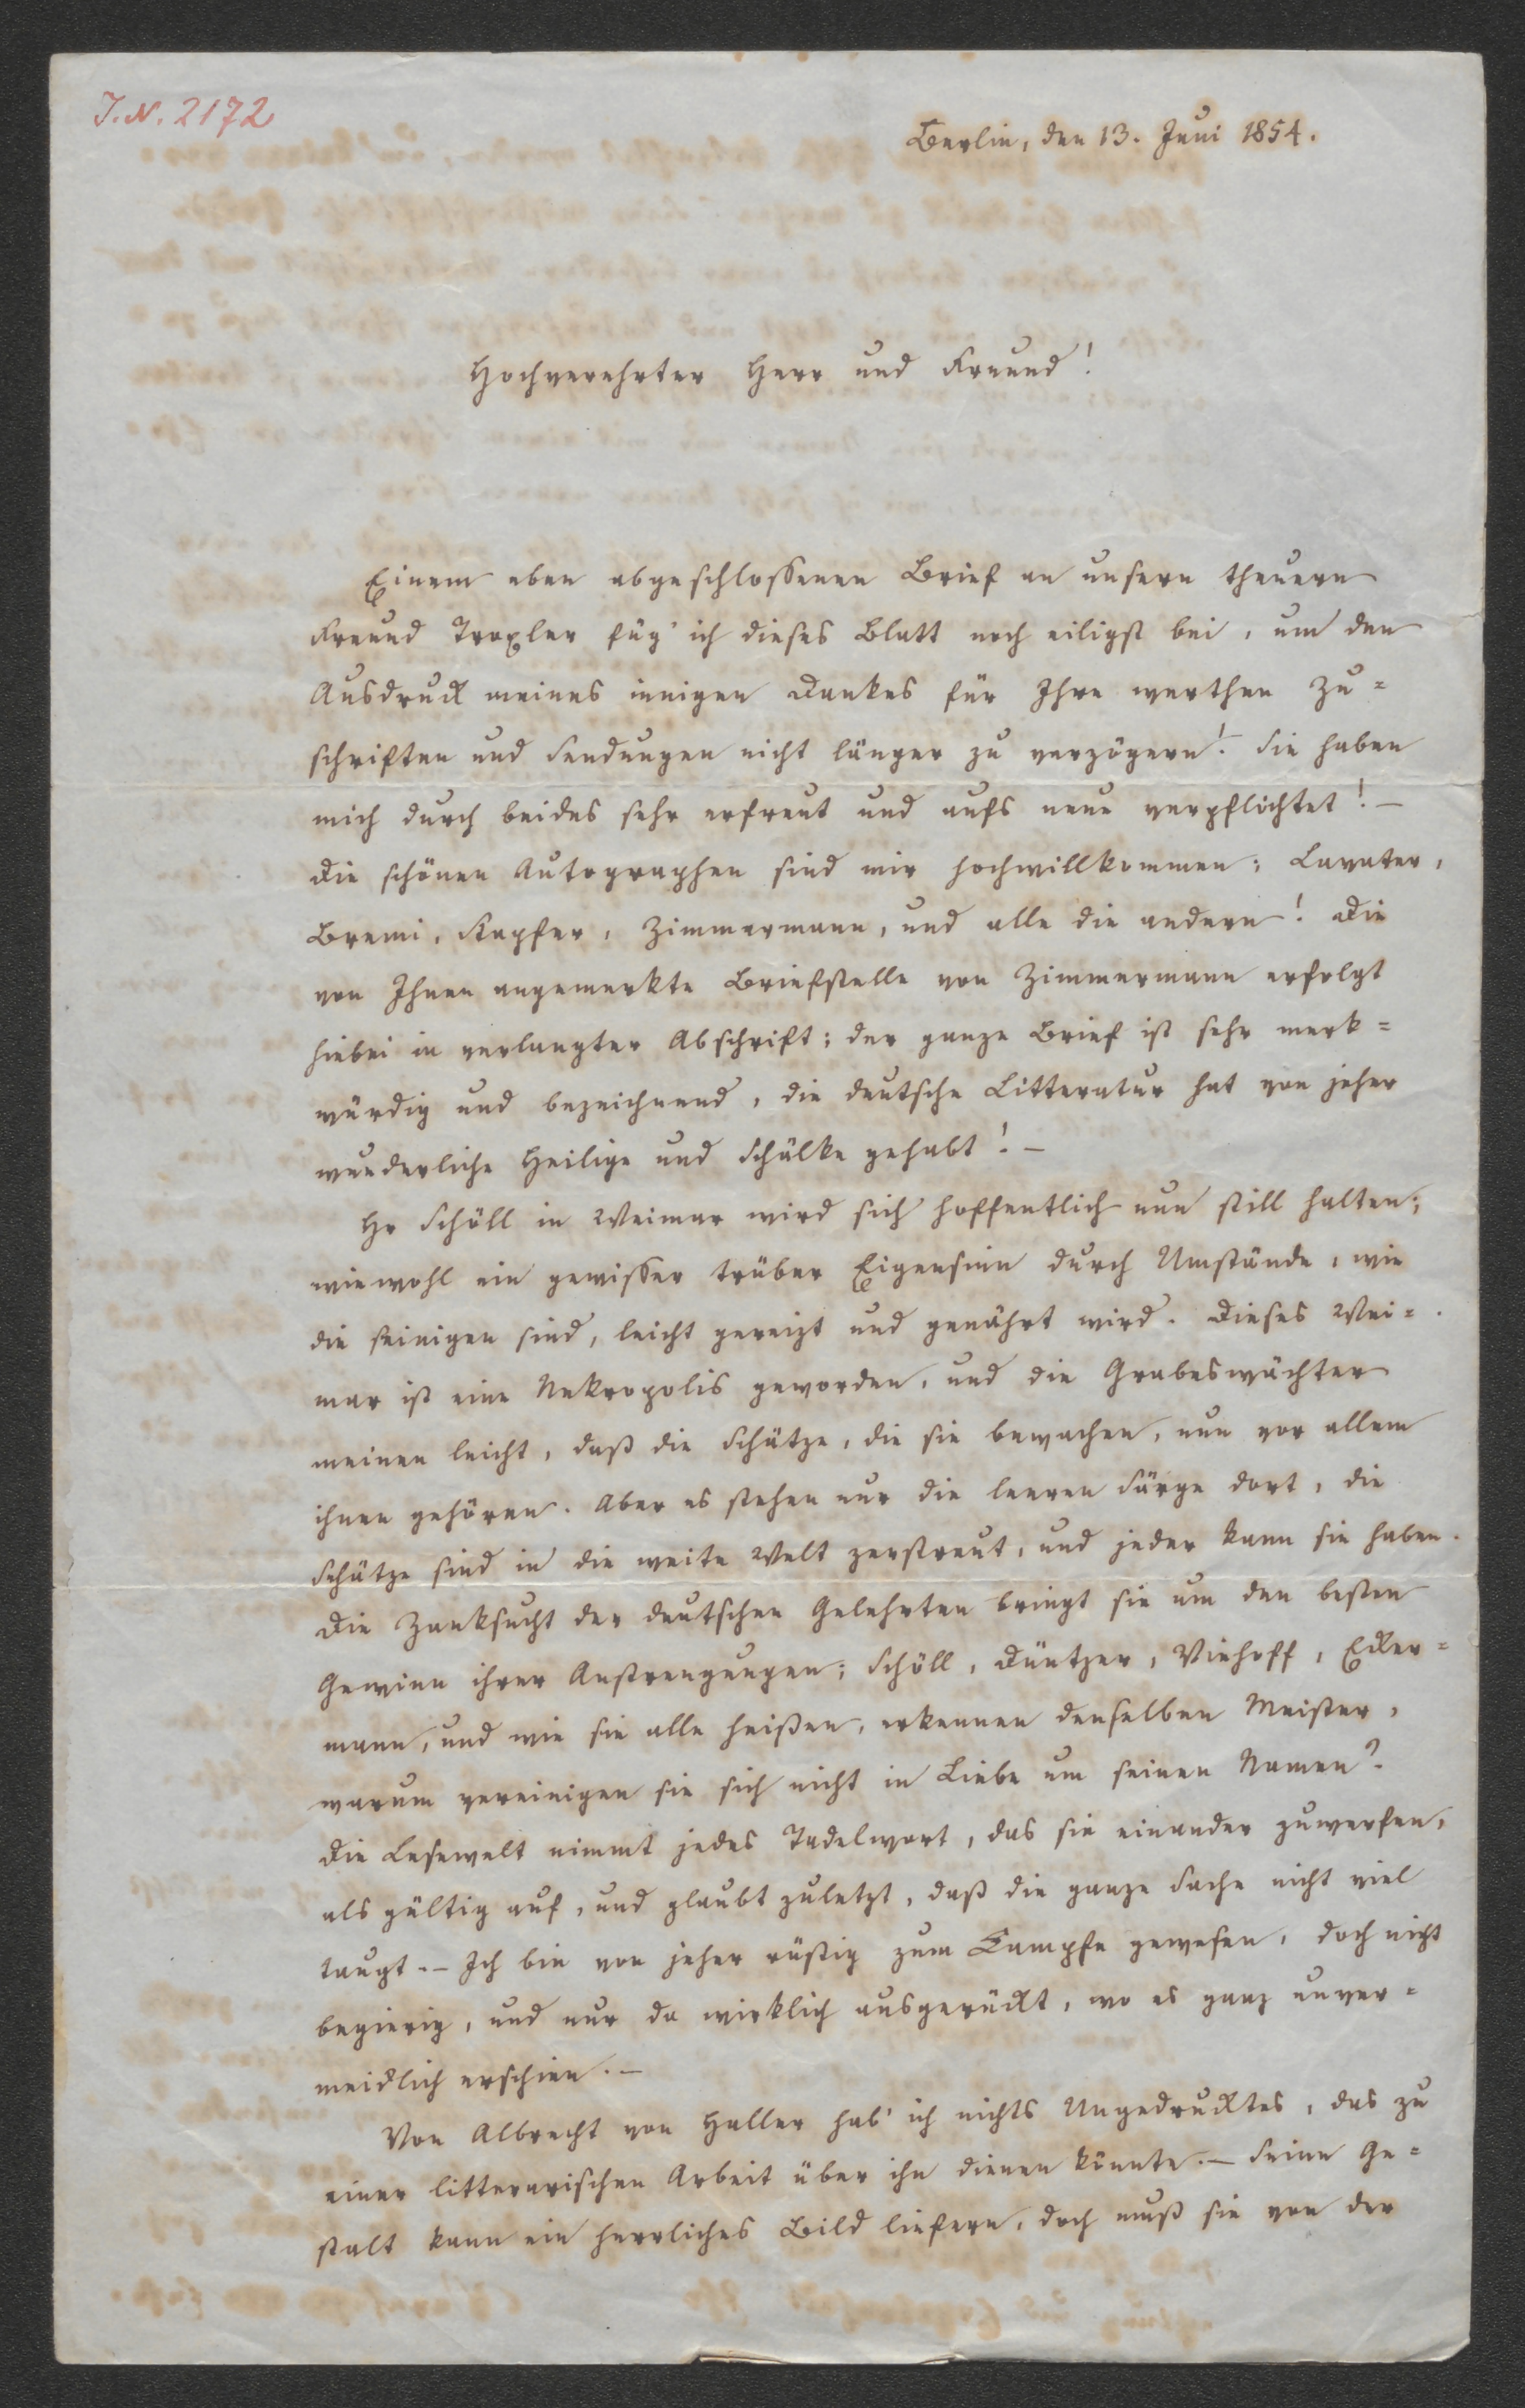 J.N. 2172
Berlin, den 13. Juni 1854.
Hochverehrter Herr und Freund!
Einem eben abgeschlossenen Brief an unsern theuern
Freund Troxler füg' ich dieses Blatt noch eiligst bei, um den
Ausdruck meines innigen Dankes für Ihre werthen Zu=
schriften und Sendungen nicht länger zu verzögern! Sie haben
mich durch beides sehr erfreut und aufs neue verpflichtet! –
Die schönen Autographen sind mir hochwillkommen; Lavater,
Bremi, Stapfer, Zimmermann, und alle die andern! Die
von Ihnen angemerkte Briefstelle von Zimmermann erfolgt
hiebei in verlangter Abschrift; der ganze Brief ist sehr merk=
würdig und bezeichnend, die deutsche Litteratur hat von jeher
wunderliche Heilige und Schälke gehabt! –
Hr Schöll in Weimar wird sich hoffentlich nun still halten;
wiewohl ein gewisser trüber Eigensinn durch Umstände, wie
die seinigen sind, leicht gereizt und genährt wird. Dieses Wei=
mar ist eine Nekropolis geworden, und die Grabeswächter
meinen leicht, daß die Schätze, die sie bewachen, nun vor allem
ihnen gehören. Aber es stehen nur die leeren Särge dort, die
Schätze sind in die weite Welt zerstreut, und jeder kann sie haben.
Die Zanksucht der deutschen Gelehrten bringt sie um den besten
Gewinn ihrer Anstrengungen; Schöll, Düntzer, Viehoff, Ecker=
mann, und wie sie alle heißen, erkennen denselben Meister,
warum vereinigen sie sich nicht in Liebe um seinen Namen?
Die Lesewelt nimmt jedes Tadelwort, das sie einander zuwerfen,
als gültig auf, und glaubt zuletzt, daß die ganze Sache nicht viel
taugt. – Ich bin von jeher rüstig zum Kampfe gewesen, doch nicht
begierig, und nur da wirklich ausgerückt, wo es ganz unver=
meidlich erschien. –
Von Albrecht von Haller hab' ich nichts Ungedrucktes, das zu
einer litterarischen Arbeit über ihn dienen könnte. – Seine Ge=
stalt kann ein herrliches Bild liefern, doch muß sie von der